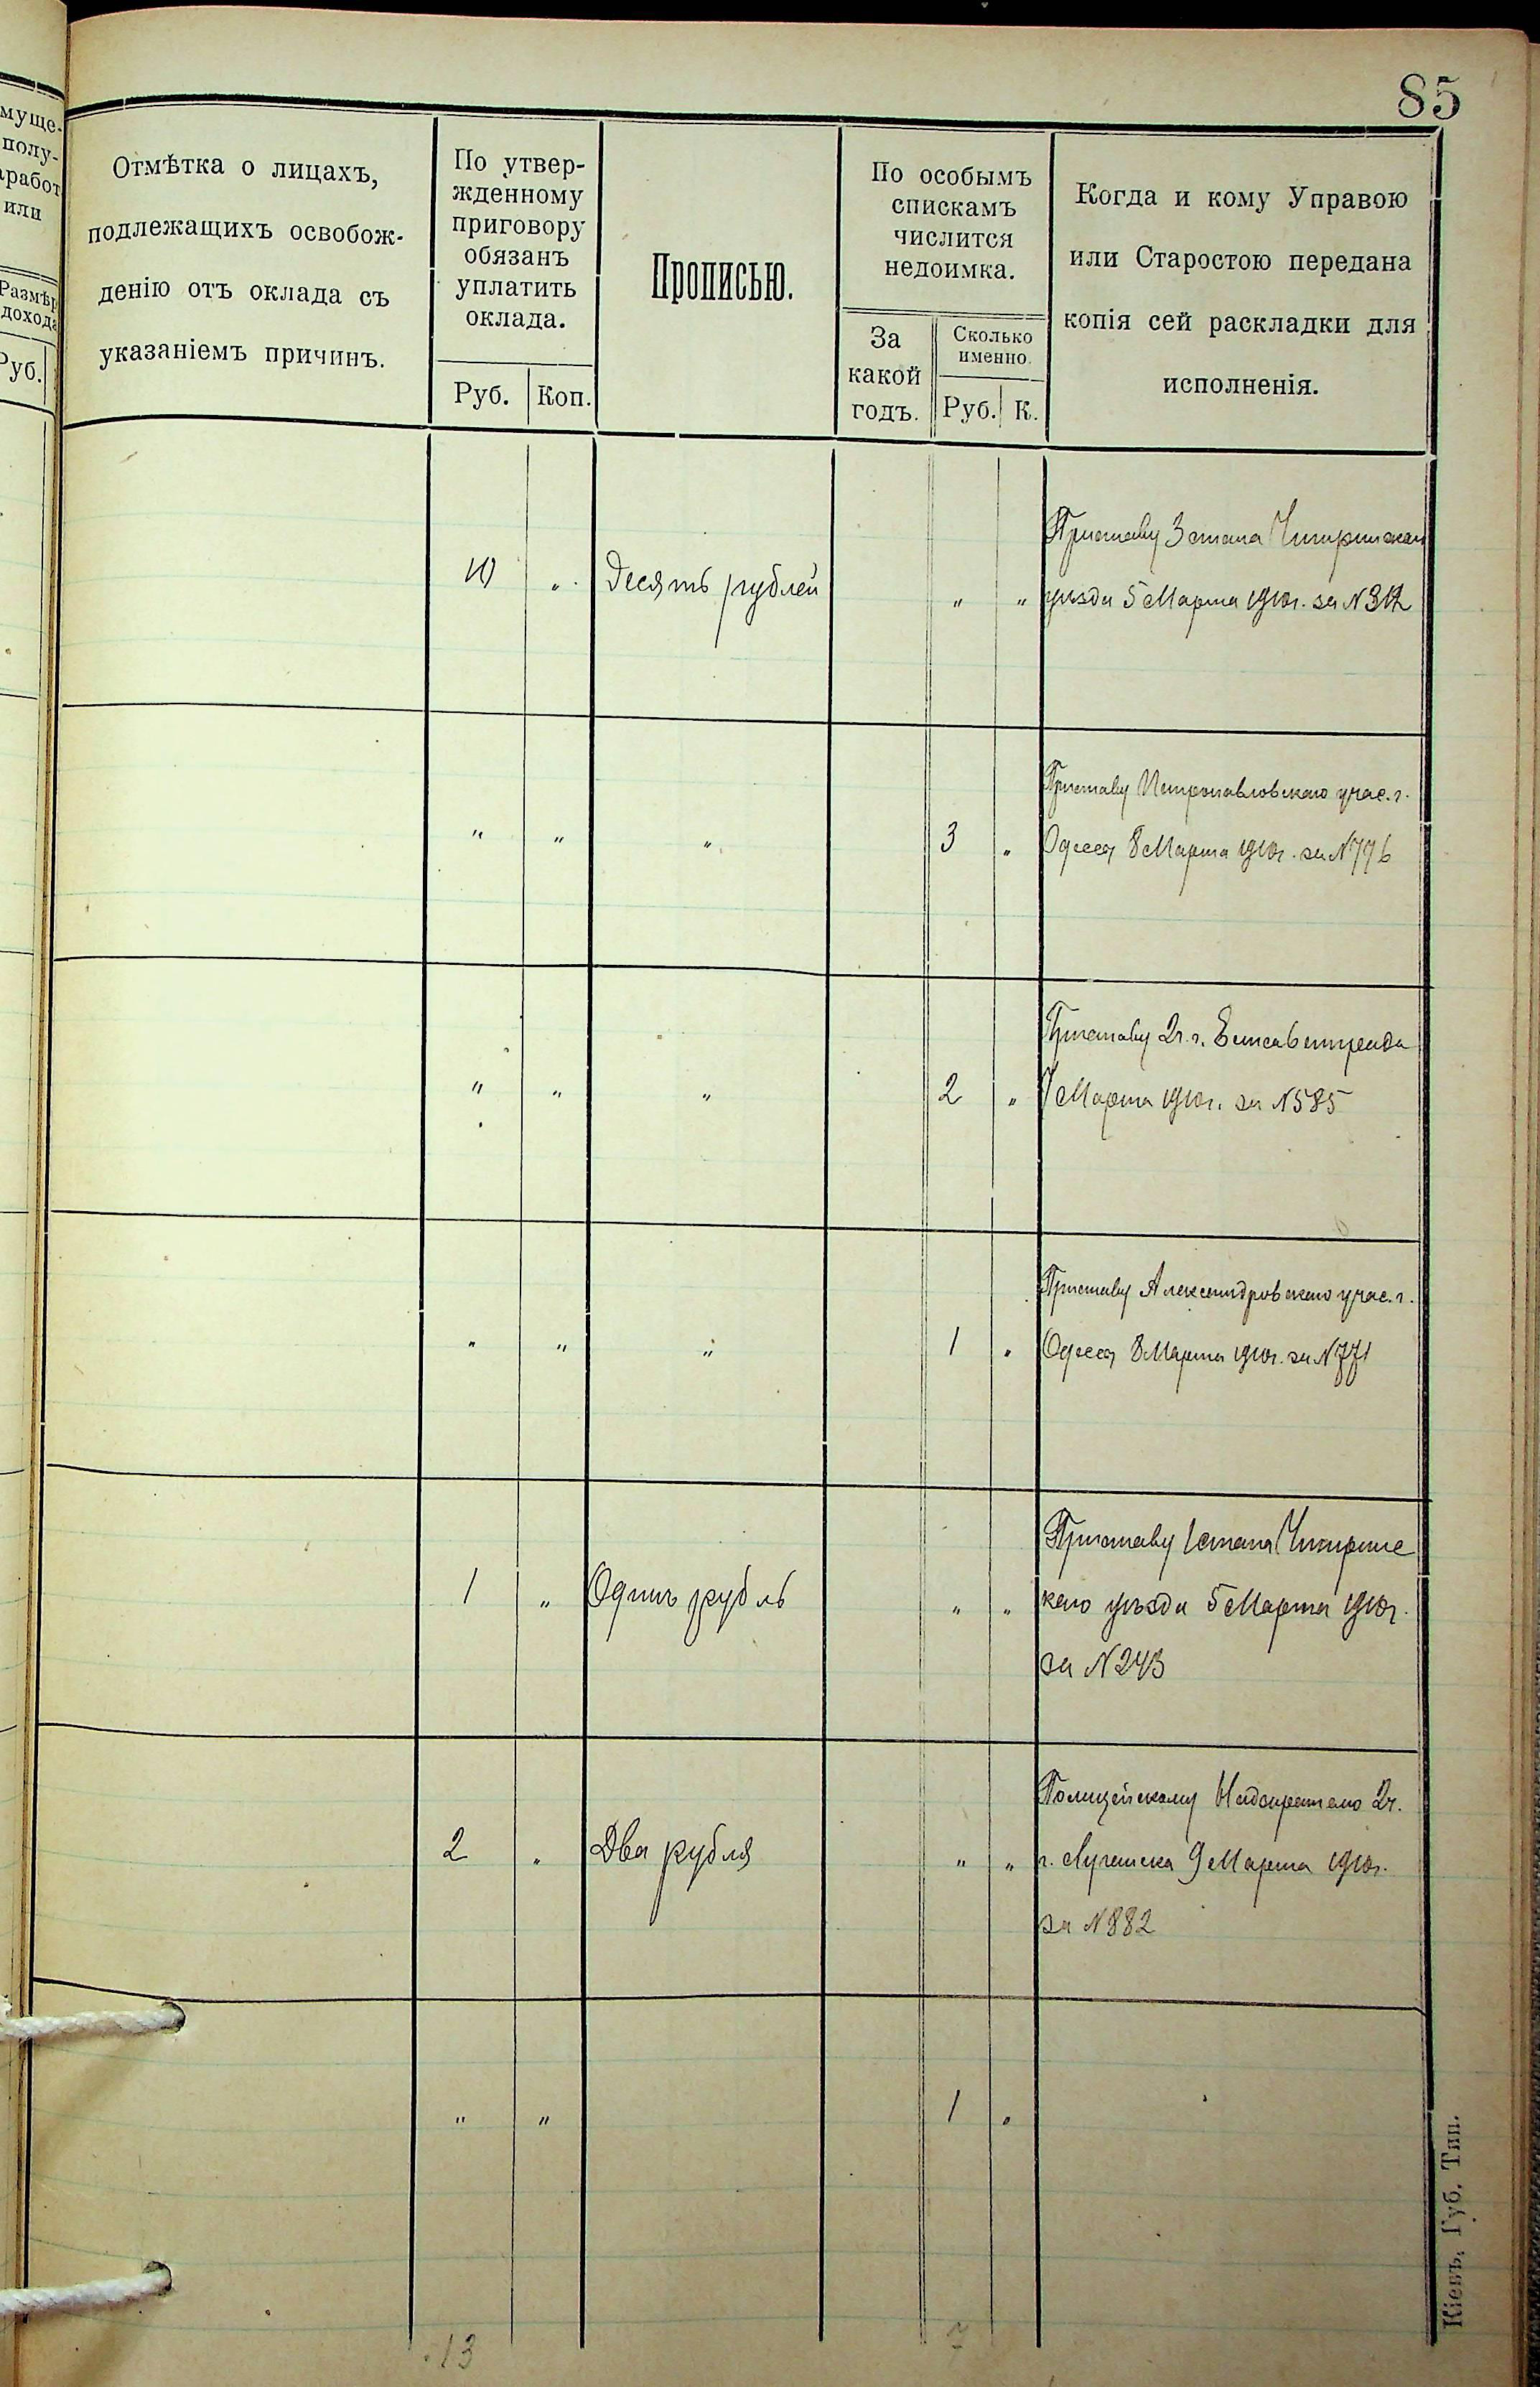 85
муще-
полу-
аработ
или
Размѣр
дохода
Руб.
Отмѣтка о лицахъ,
подлежащихъ освобож-
денію отъ оклада съ
указаніемъ причинъ.
По утвер-
жденному
приговору
обязанъ
уплатить
оклада.
Руб. Коп.
Прописью.
По особымъ
спискамъ
числится
недоимка.
За
какой
годъ.
Сколько
именно.
Руб. К.
Когда и кому Управою
или Старостою передана
копія сей раскладки для
исполненія.
Приставу 3 стана Чигиринскаго
10 " Десять рублей " " уѣзда 5 Марта 1910г. за N312
Приставу Петропавловскаго учас. г.
" " " 3 " Одессы 8 Марта 1910г. за N776
Приставу 2ч. г. Елисаветграда
" " " 2 " Марта 1910г. за N585
Приставу Александровскаго учас. г.
" " " 1 " Одессы 8 Марта 1910г. за N771
Приставу 1 стана Чигирин
1 " Одинъ рубль " " скаго уѣзда 5 Марта 1910г.
за N243
Полицейскому Надзирателю 2ч.
2 " Два рубля " " г. Луганска 9 Марта 1910г.
за N882
" " 1 "
13 7
Кіевъ, Губ. Тип.